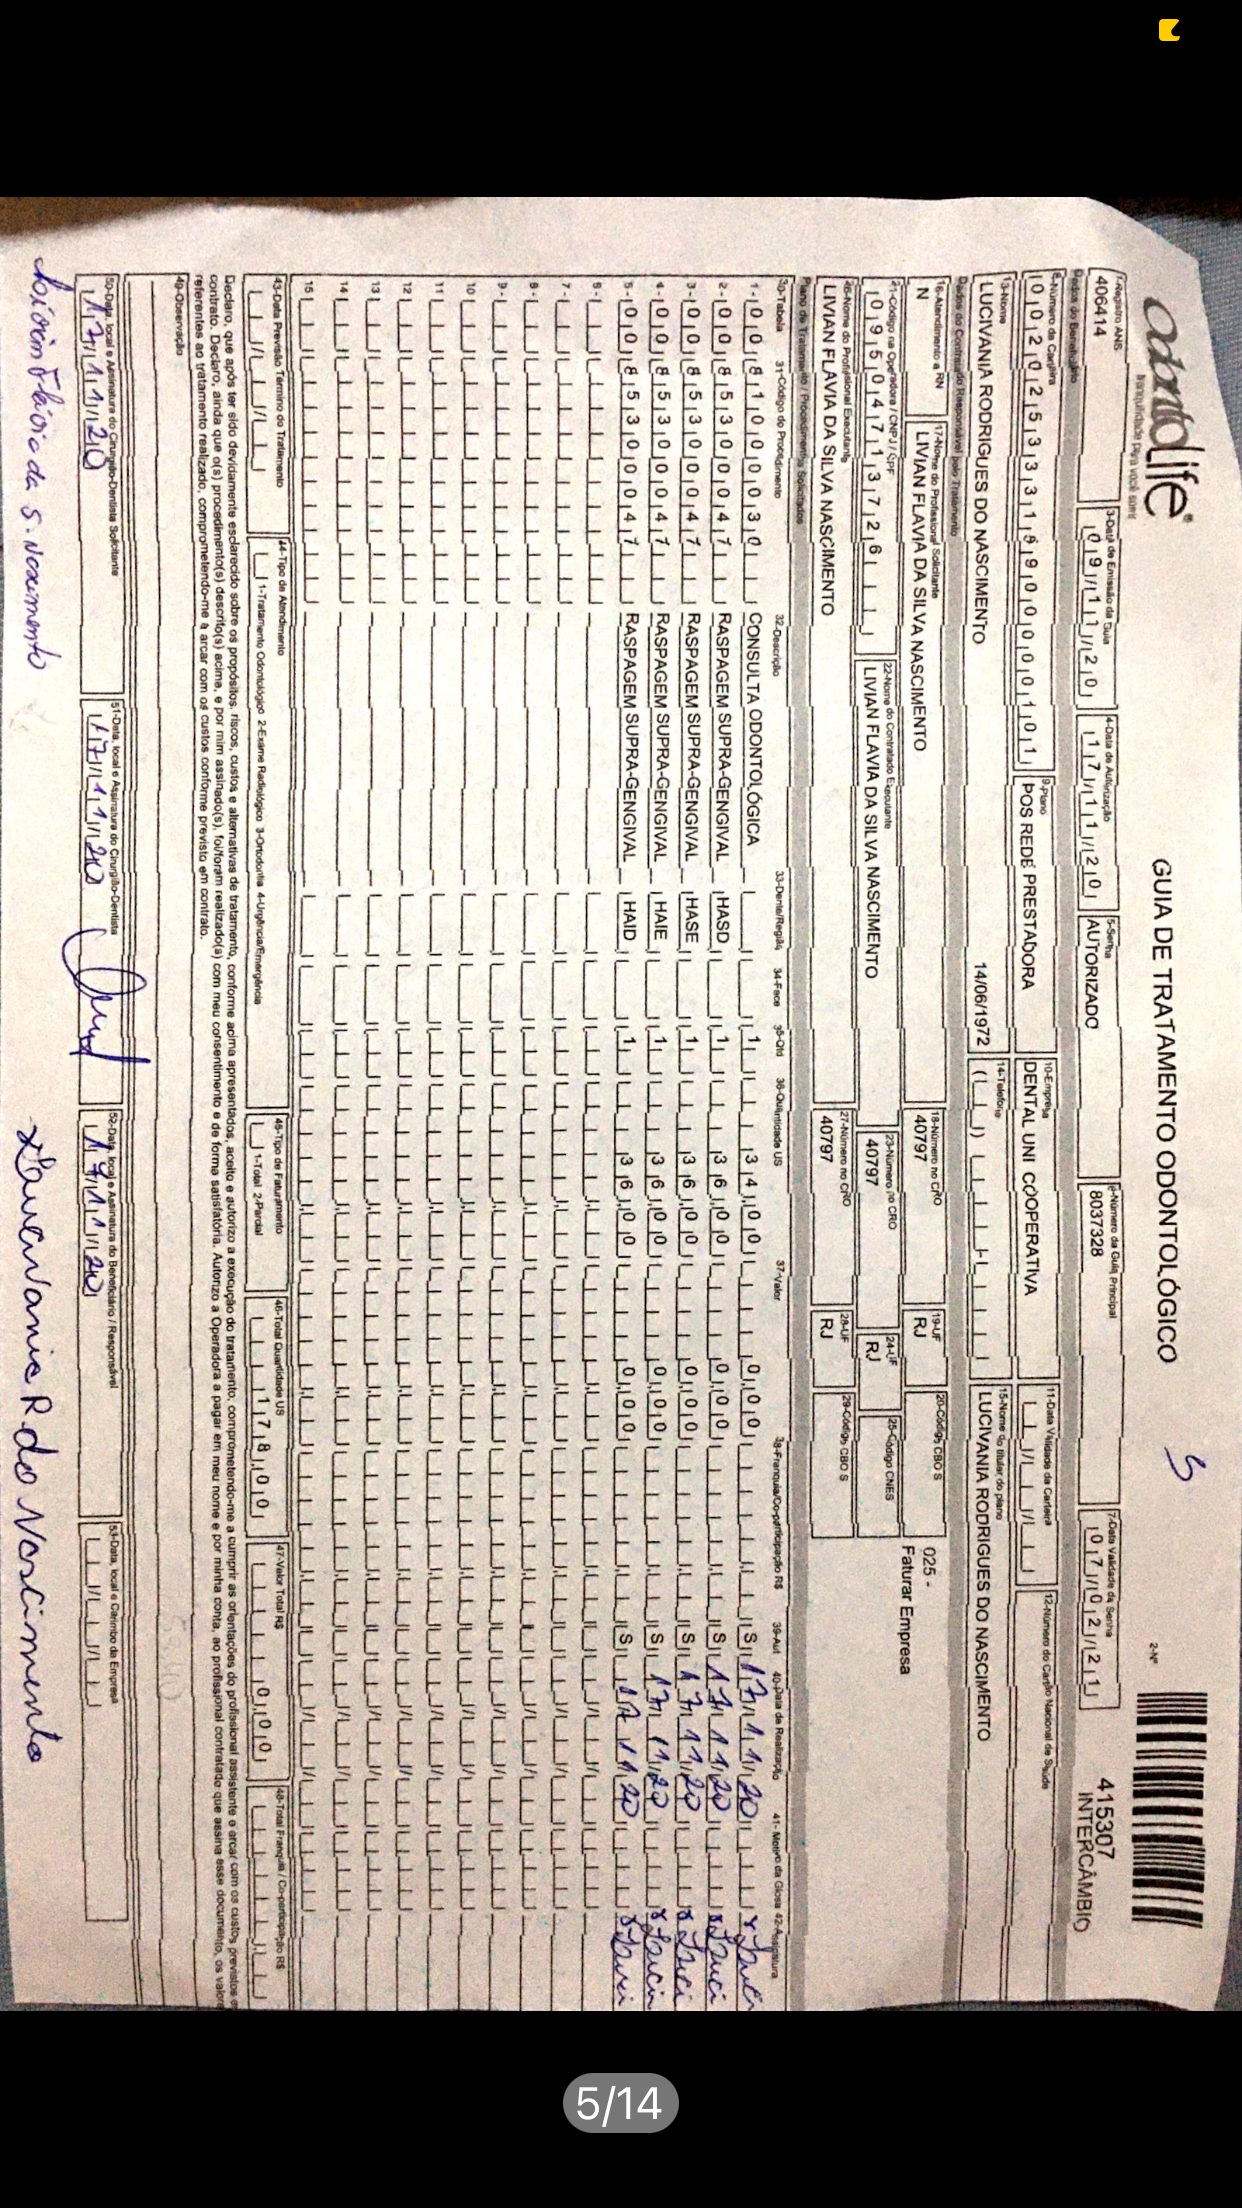 odontoLife®
tranquilidade para você sorrir
GUIA DE TRATAMENTO ODONTOLÓGICO
3
2-Nº
415307
INTERCÂMBIO
1-Registro ANS
406414
3-Data de Emissão da Guia
09/11/20
4-Data de Autorização
17/11/20
5-Senha
AUTORIZADO
6-Número da Guia Principal
8037328
7-Data Validade da Senha
07/02/21
Dados do Beneficiário
8-Número da Carteira
9-Plano
POS REDE PRESTADORA
10-Empresa
DENTAL UNI COOPERATIVA
11-Data Validade da Carteira
12-Número do Cartão Nacional de Saúde
13-Nome
LUCIVANIA RODRIGUES DO NASCIMENTO
14/06/1972
14-Telefone
15-Nome do titular do plano
LUCIVANIA RODRIGUES DO NASCIMENTO
Dados do Contratado Responsável pelo Tratamento
16-Atendimento a RN
N
17-Nome do Profissional Solicitante
LIVIAN FLAVIA DA SILVA NASCIMENTO
18-Número no CRO
40797
19-UF
RJ
20-Código CBO S
025 -
Faturar Empresa
21-Código na Operadora / CNPJ / CPF
09504713726
22-Nome do Contratado Executante
LIVIAN FLAVIA DA SILVA NASCIMENTO
23-Número no CRO
40797
24-UF
RJ
25-Código CNES
26-Nome do Profissional Executante
LIVIAN FLAVIA DA SILVA NASCIMENTO
27-Número no CRO
40797
28-UF
RJ
29-Código CBO S
Plano de Tratamento / Procedimentos Solicitados
30-Tabela 31-Código do Procedimento 32-Descrição 33-Dente/Região 34-Face 35-Qtd 36-Quantidade US 37-Valor 38-Franquia/Co-participação R$ 39-Aut 40-Data de Realização 41-Motivo da Glosa 42-Assinatura
1 - 00 81000030 CONSULTA ODONTOLÓGICA 1 34,00 0,00 S 17/11/20 x Luci
2 - 00 85300047 RASPAGEM SUPRA-GENGIVAL HASD 1 36,00 0,00 S 17/11/20 x Luci
3 - 00 85300047 RASPAGEM SUPRA-GENGIVAL HASE 1 36,00 0,00 S 17/11/20 x Luci
4 - 00 85300047 RASPAGEM SUPRA-GENGIVAL HAIE 1 36,00 0,00 S 17/11/20 x Luciv
5 - 00 85300047 RASPAGEM SUPRA-GENGIVAL HAID 1 36,00 0,00 S 17/11/20 x Luciv
6 -
7 -
8 -
9 -
10
11
12
13
14
15
43-Data Previsão Término do Tratamento
44-Tipo de Atendimento
1-Tratamento Odontológico 2-Exame Radiológico 3-Ortodontia 4-Urgência/Emergência
45-Tipo de Faturamento
1-Total 2-Parcial
46-Total Quantidade US
178,00
47-Valor Total R$
0,00
48-Total Franquia / Co-participação R$
Declaro, que após ter sido devidamente esclarecido sobre os propósitos, riscos, custos e alternativas de tratamento, conforme acima apresentados, aceito e autorizo a execução do tratamento, comprometendo-me a cumprir as orientações do profissional assistente e arcar com os custos previstos e
contrato. Declaro, ainda que o(s) procedimento(s) descrito(s) acima, e por mim assinado(s), foi/foram realizado(s) com meu consentimento e de forma satisfatória. Autorizo a Operadora a pagar em meu nome e por minha conta, ao profissional contratado que assina esse documento, os valore
referentes ao tratamento realizado, comprometendo-me a arcar com os custos conforme previsto em contrato.
49-Observação
50-Data, local e Assinatura do Cirurgião-Dentista Solicitante
17/11/20
51-Data, local e Assinatura do Cirurgião-Dentista
17/11/20
52-Data, local e Assinatura do Beneficiário / Responsável
17/11/20
53-Data, local e Carimbo da Empresa
Livian Flávia da S. Nascimento
x Lucivania R do Nascimento
5/14